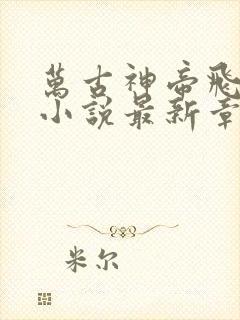 萬古神帝飛
小說最新章
米尔